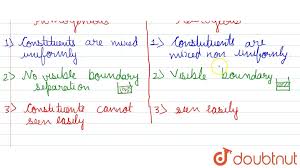 1) Constituents are mixed
uniformly
2) No visible boundary
separation
3) Constituents cannot
seen easily
1) Constituents are
mixed non uniformly
2) Visible boundary
3) seen easily
doubtnut